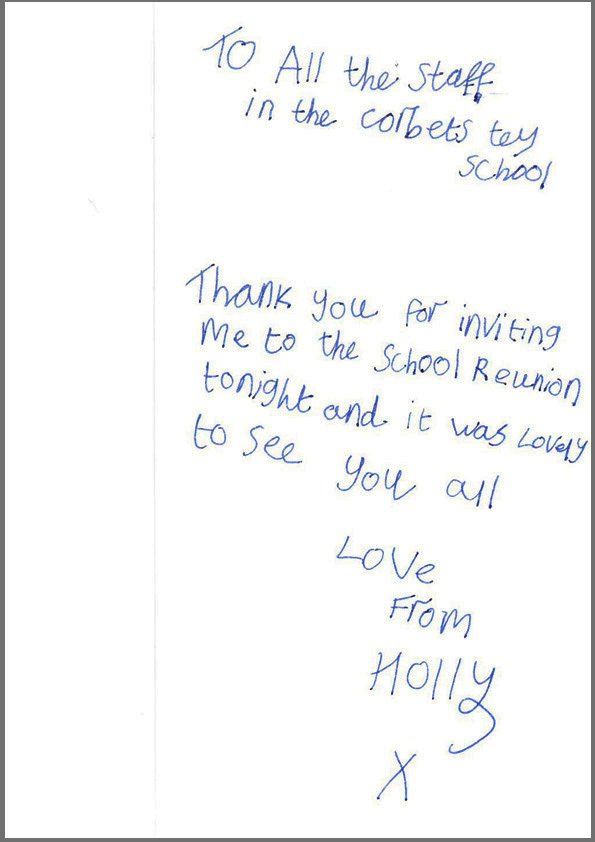 To All the staff
in the corbets tey
school
Thank you for inviting
Me to the school Reunion
tonight and it was Lovely
to see you all
Love
From
Holly
X